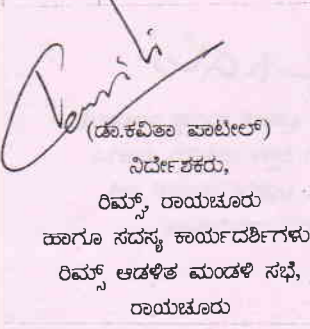 (ಡಾ.ಕವಿತಾ ಪಾಟೀಲ್)
ನಿರ್ದೇಶಕರು,
ರಿಮ್ಸ್, ರಾಯಚೂರು
ಹಾಗೂ ಸದಸ್ಯ ಕಾರ್ಯದರ್ಶಿಗಳು
ರಿಮ್ಸ್ ಆಡಳಿತ ಮಂಡಳಿ ಸಭೆ,
ರಾಯಚೂರು